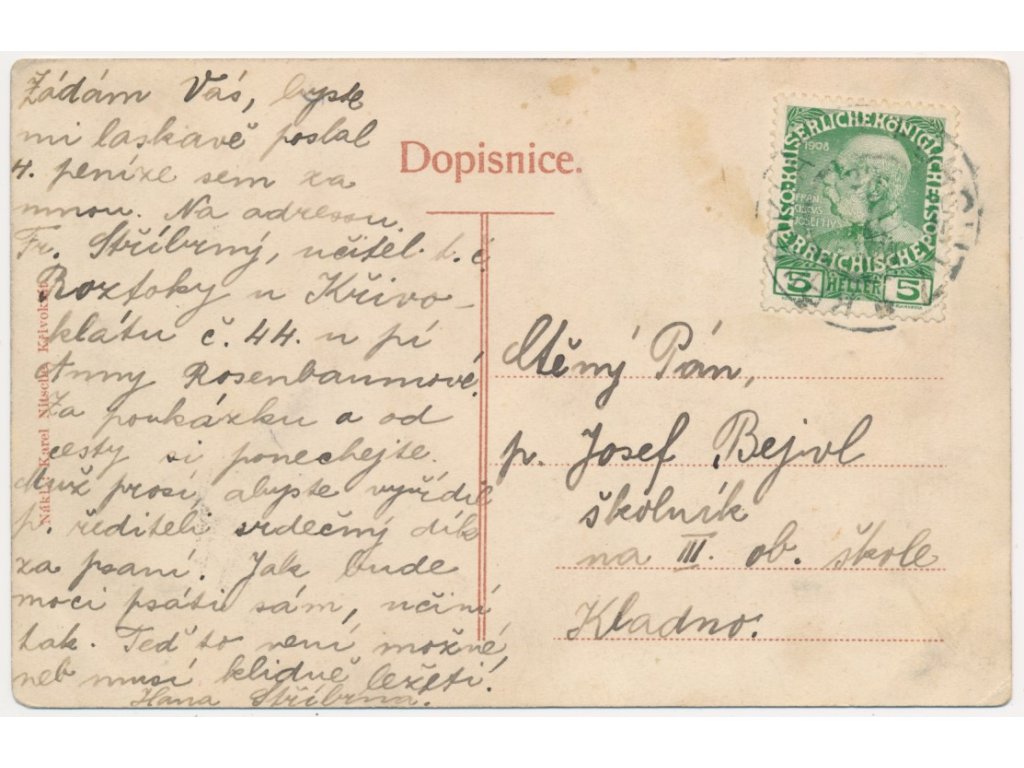 Žádám Vás, byste
mi laskavě poslal
4. peníze sem za
mnou. Na adressu.
Fr. Stříbrný, učitel t. č.
Roztoky u Křivo-
klátu č. 44. u pí
Anny Rosenbaumové.
Za poukázku a od
cesty si ponechejte.
Muž prosí, abyste vyřídil
p. řediteli srdečný dík
za psaní. Jak bude
moci psáti sám, učiní
tak. Teď to není možné,
neb musí klidně ležeti.
Hana Stříbrná.
Nákl. Karel Nitsche, Křivoklát
Dopisnice.
1908
KAISERLICHEKÖNIGLICHE
ÖSTERREICHISCHE
POST
FRAN
IOSEPH I
5 HELLER 5
Ctěný Pán,
p. Josef Bejvl
školník
na III. ob. škole
Kladno.